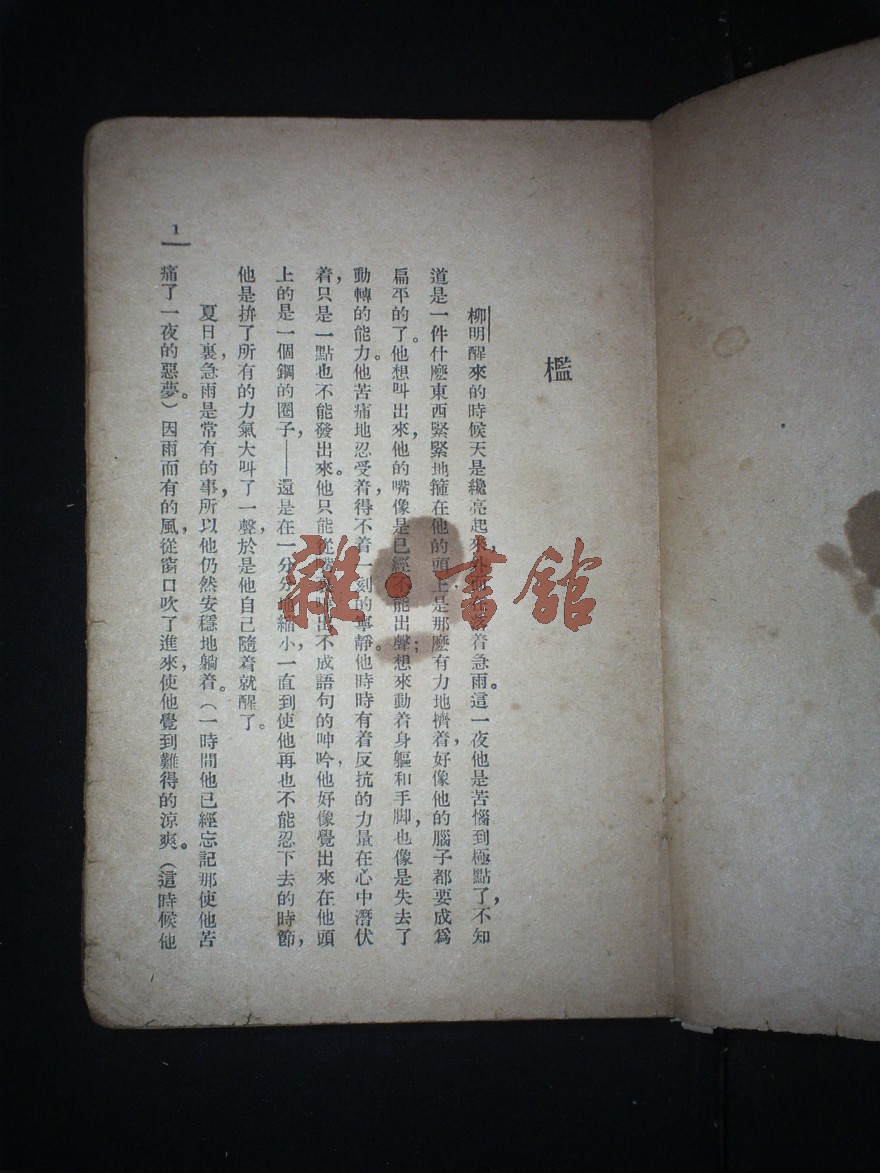 檻
柳明醒來的時候天是纔亮起來,外面落着急雨。這一夜他是苦惱到極點了,不知
道是一件什麽東西緊緊地箍在他的頭上是那麽有力地擠着,好像他的腦子都要成爲
扁平的了。他想叫出來,他的嘴像是已經不能出聲;想來動着身軀和手脚,也像是失去了
動轉的能力。他苦痛地忍受着,得不着一刻的寧靜。他時時有着反抗的力量在心中潛伏
着,只是一點也不能發出來。他只能從嘴 出不成語句的呻吟,他好像覺出來在他頭
上的是一個鋼的圈子,——還是在一分分地縮小,一直到使他再也不能忍下去的時節,
他是拚了所有的力氣大叫了一聲,於是他自己隨着就醒了。
夏日裏,急雨是常有的事,所以他仍然安穩地躺着。(一時間他已經忘記那使他苦
痛了一夜的惡夢。)因雨而有的風,從窗口吹了進來,使他覺到難得的涼爽。(這時候他
1
雜·書館